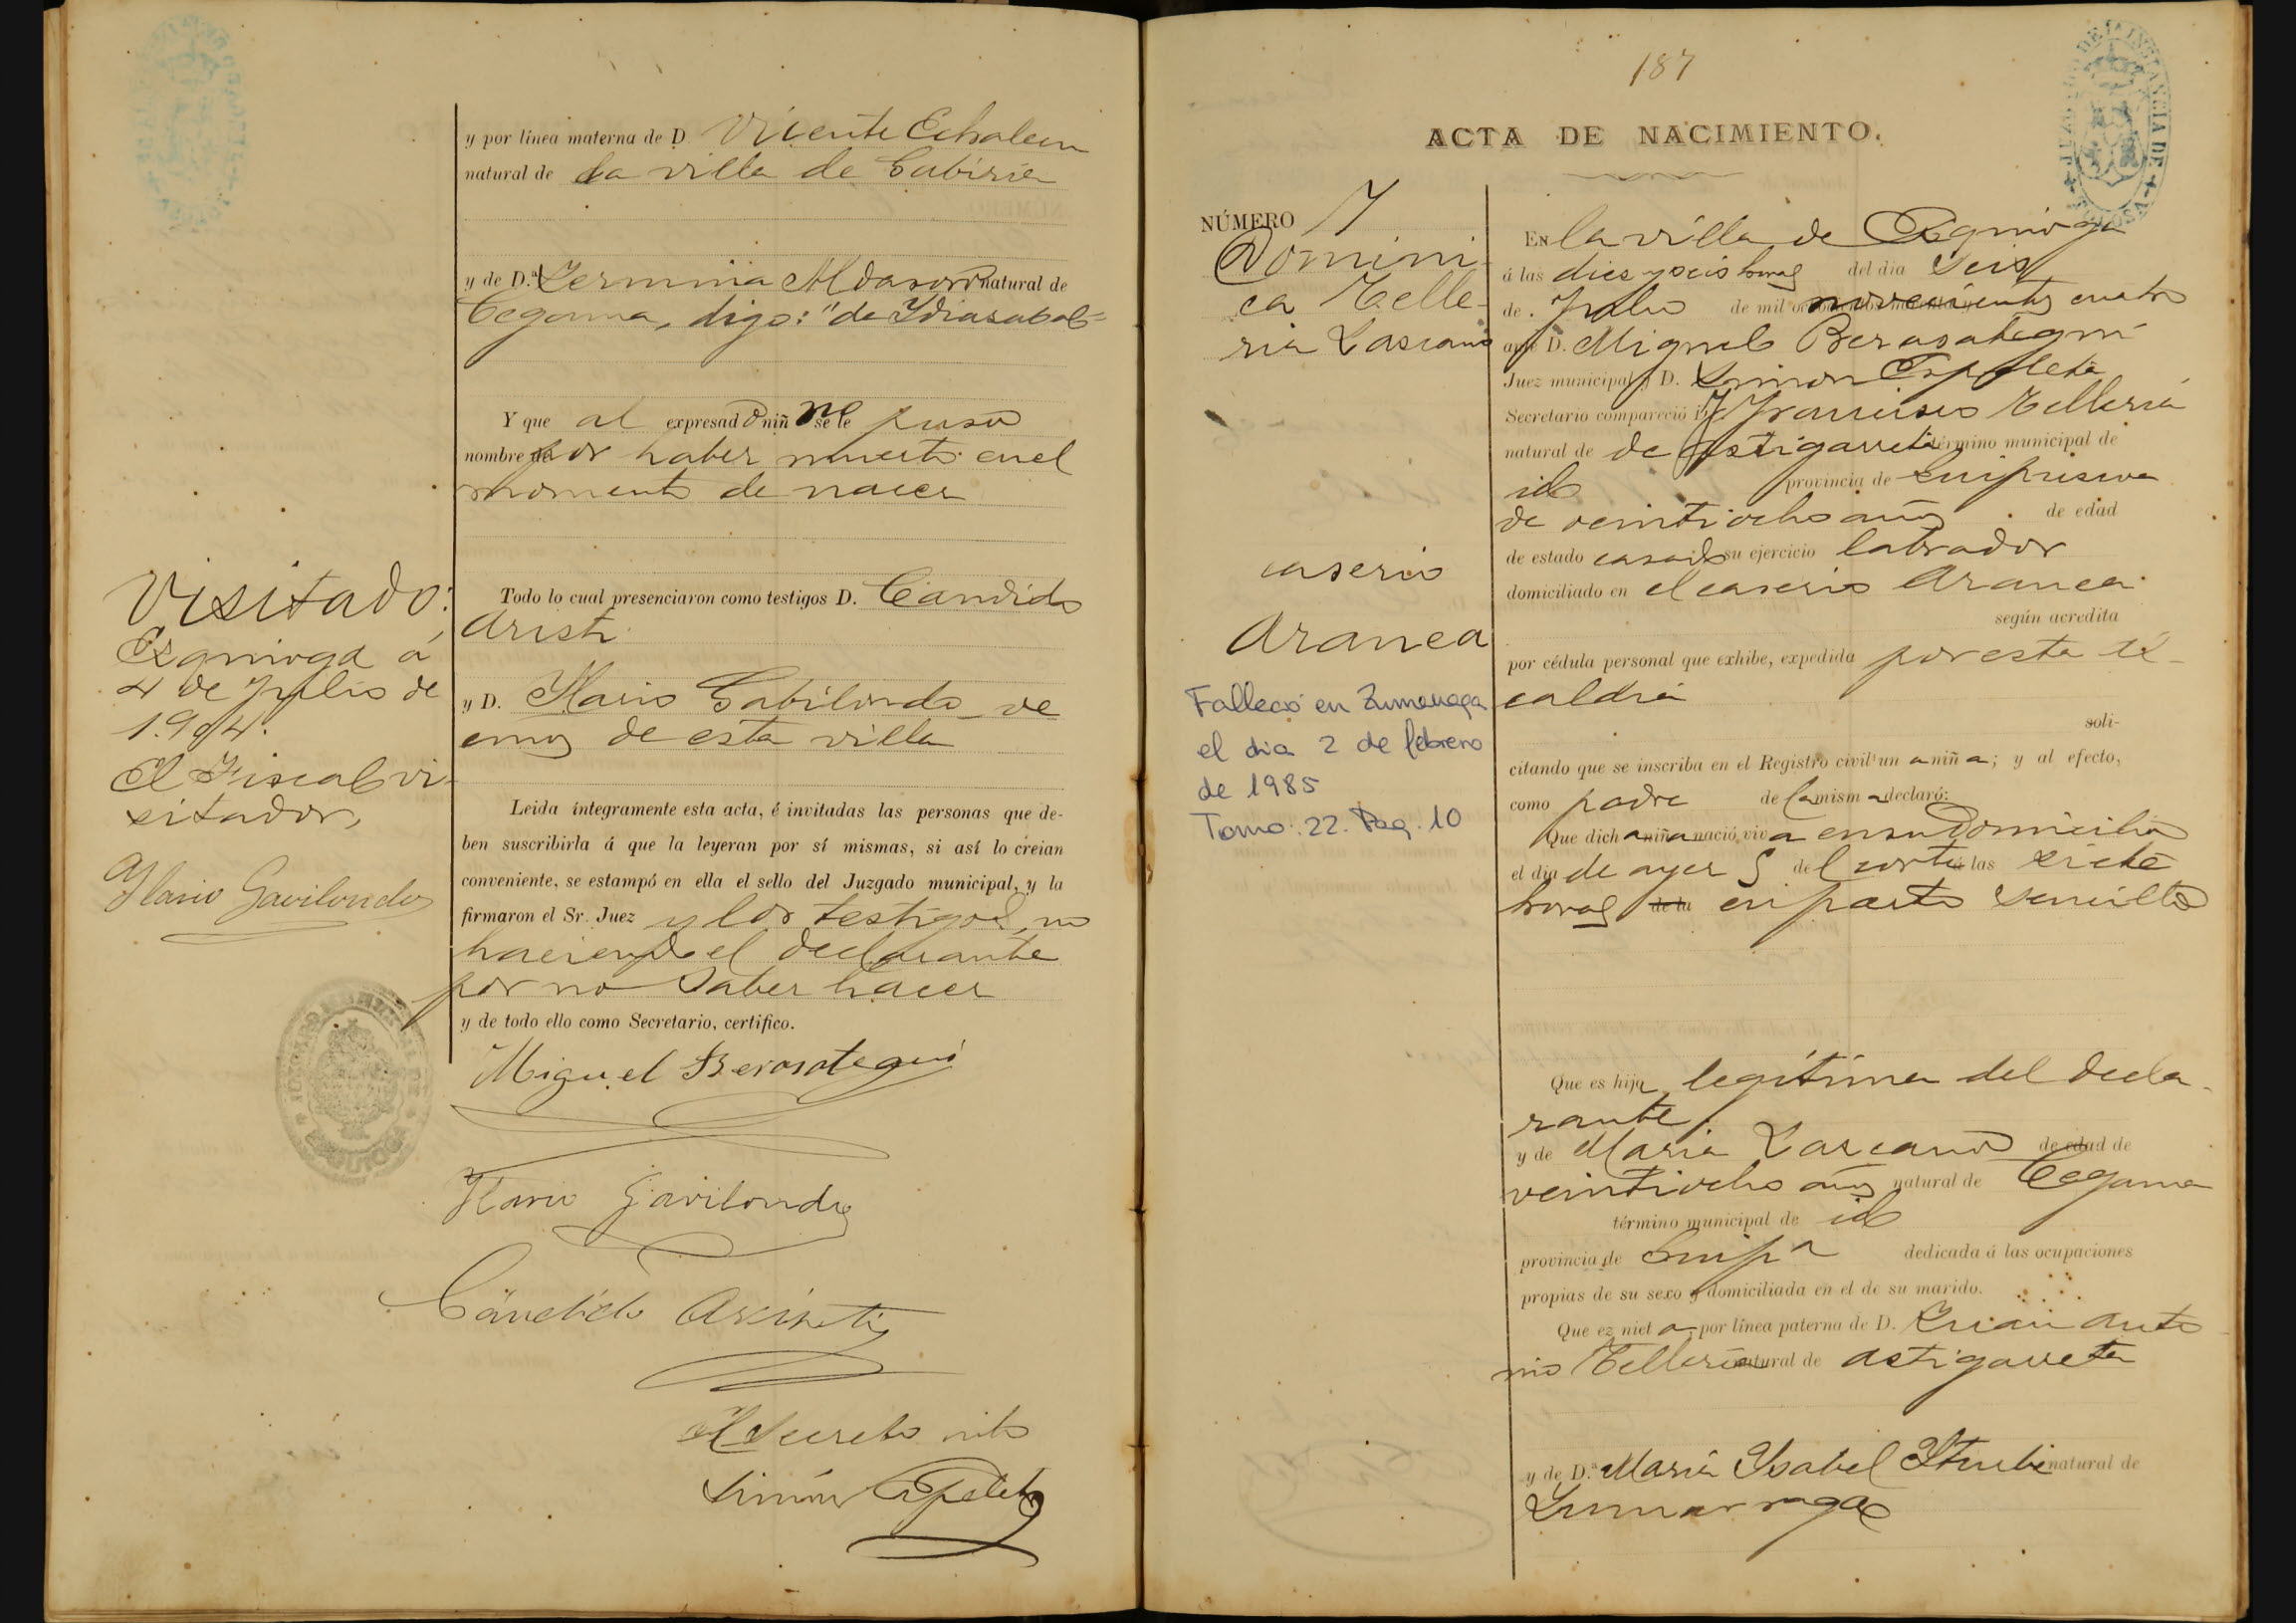 y por línea materna de D. Vicente Echaleen
natural de la villa de Gabiria
y de D.ª Fermina Aldasoro natural de
Cegama, digo: "de Ydiazabal"
Y que al expresado niño no se le puso
nombre por haber muerto en el
momento de nacer
Todo lo cual presenciaron como testigos D. Candido
Aristi
y D. Ylario Gabilondo ve
cinos de esta villa
Leida íntegramente esta acta, é invitadas las personas que de-
ben suscribirla á que la leyeran por sí mismas, si así lo creian
conveniente, se estampó en ella el sello del Juzgado municipal, y la
firmaron el Sr. Juez y los testigos, no
haciendo el declarante
por no saber hacer
y de todo ello como Secretario, certifico.
Miguel Berasategui
Ylario Gavilondo
Cándido Aristi
El Secretario
Simón Ezpeleta
Visitado:
Ezquioga á
4 de Julio de
1.904.
El Fiscal vi-
sitador,
Ylario Gavilondo
187
ACTA DE NACIMIENTO.
NÚMERO 7
Domini-
ca Telle-
ria Lascano
caserio
Aranea
Falleció en Zumarraga
el dia 2 de febrero
de 1985
Tomo: 22. Pag. 10
En la villa de Ezquioga
á las diez y seis horas del dia seis
de Julio de mil novecientos cuatro
ante D. Miguel Berasategui
Juez municipal y D. Simon Ezpeleta
Secretario compareció D. Francisco Telleria
natural de de Astigarreta término municipal de
id provincia de Guipúzcoa
de veintiocho años de edad
de estado casado su ejercicio labrador
domiciliado en el caserio Aranea
según acredita
por cédula personal que exhibe, expedida por esta al-
caldia
soli-
citando que se inscriba en el Registro civil una niña; y al efecto,
como padre de la misma declaró:
Que dicha niña nació viva en su domicilio
el dia de ayer 5 del corte á las siete
horas de la en parto sencillo
Que es hija legítima del decla-
rante
y de Maria Lascano de edad de
veintiocho años natural de Cegama
término municipal de id
provincia de Guipª dedicada á las ocupaciones
propias de su sexo y domiciliada en el de su marido.
Que es nieta por línea paterna de D. Juan Anto
nio Telleria natural de Astigarreta
y de D.ª Maria Ysabel Yturbe natural de
Zumarraga